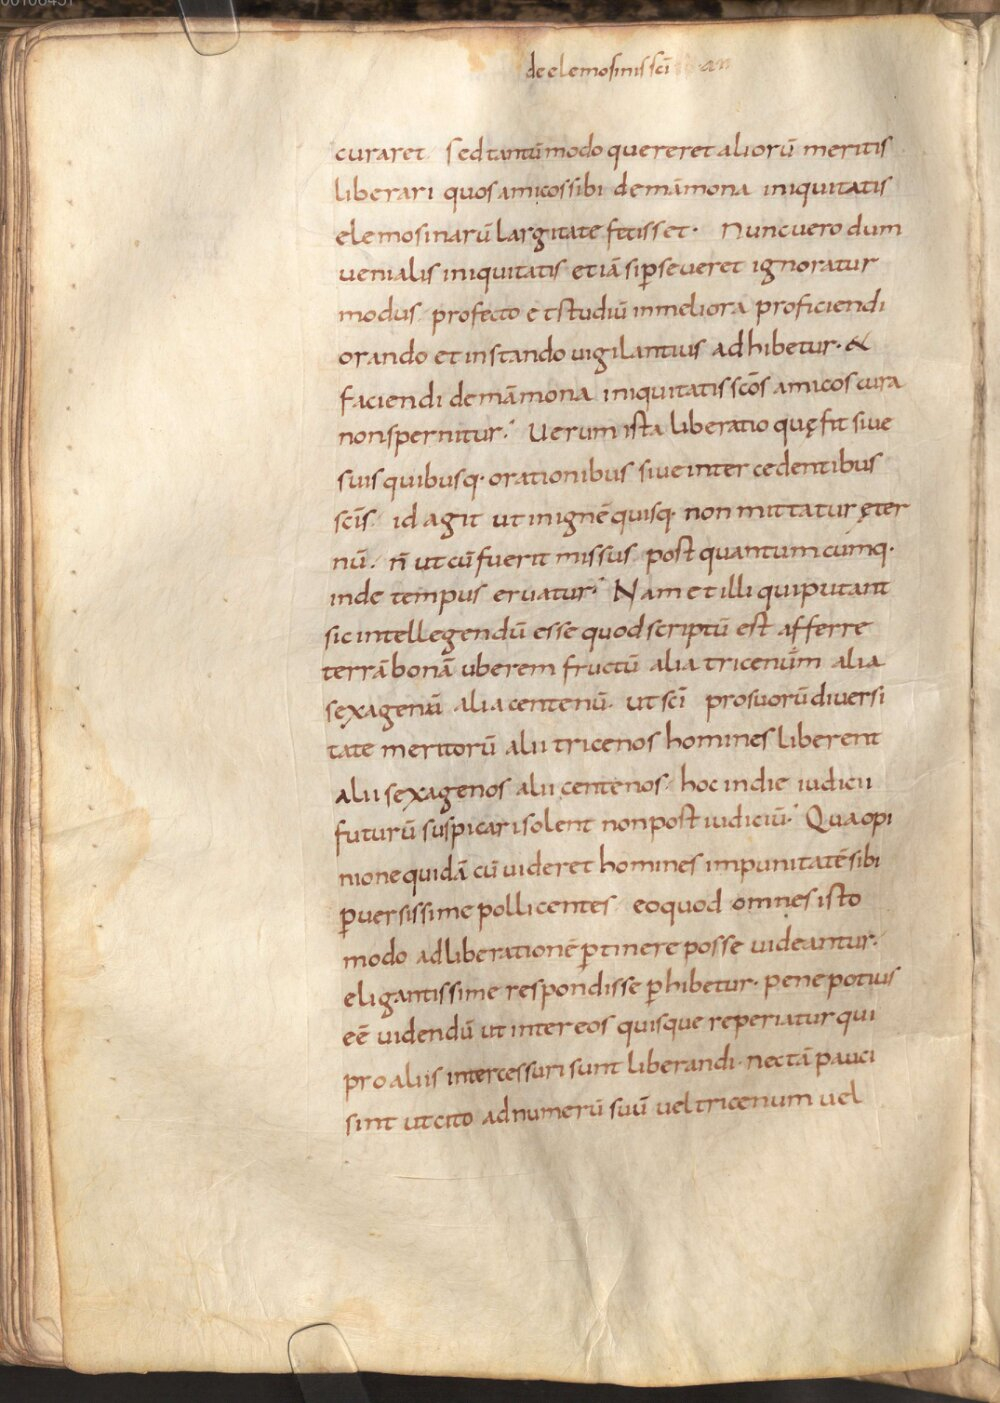 de elemosinis sci
curaret sed tantū modo quereret aliorū meritis
liberari quos amicos sibi de māmona iniquitatis
elemosinarū largitate fecisset· Nunc uero dum
uenialis iniquitatis etiā si pseueret ignoratur
modus· profecto et studiū in meliora proficiendi
orando et instando uigilantius adhibetur· &
faciendi de māmona iniquitatis scōs amicos cura
non spernitur· Uerum ista liberatio quę fit siue
suis quibusq· orationibus siue intercedentibus
scīs· id agit ut in ignē quisq· non mittatur ęter
nū· n̄ ut cū fuerit missus post quantumcumq·
inde tempus eruatur· Nam et illi qui putant
sic intellegendū esse quod scriptū est afferre
terrā bonā uberem fructū alia tricenūm alia
sexagenū alia centenū· ut scī pro suorū diuersi
tate meritorū alii tricenos homines liberent
alii sexagenos alii centenos· hoc in die iudicii
futurū suspicari solent non post iudiciū· Qua opi
nione quidā cū uideret homines impunitatē sibi
puersissime pollicentes· eo quod omnes isto
modo ad liberationē ptinere posse uideantur·
eligantissime respondisse phibetur· pene potius
eē uidendū ut inter eos quisque reperiatur qui
pro aliis intercessuri sunt liberandi· nec tā pauci
sint ut cito ad numerū suū uel tricenum uel